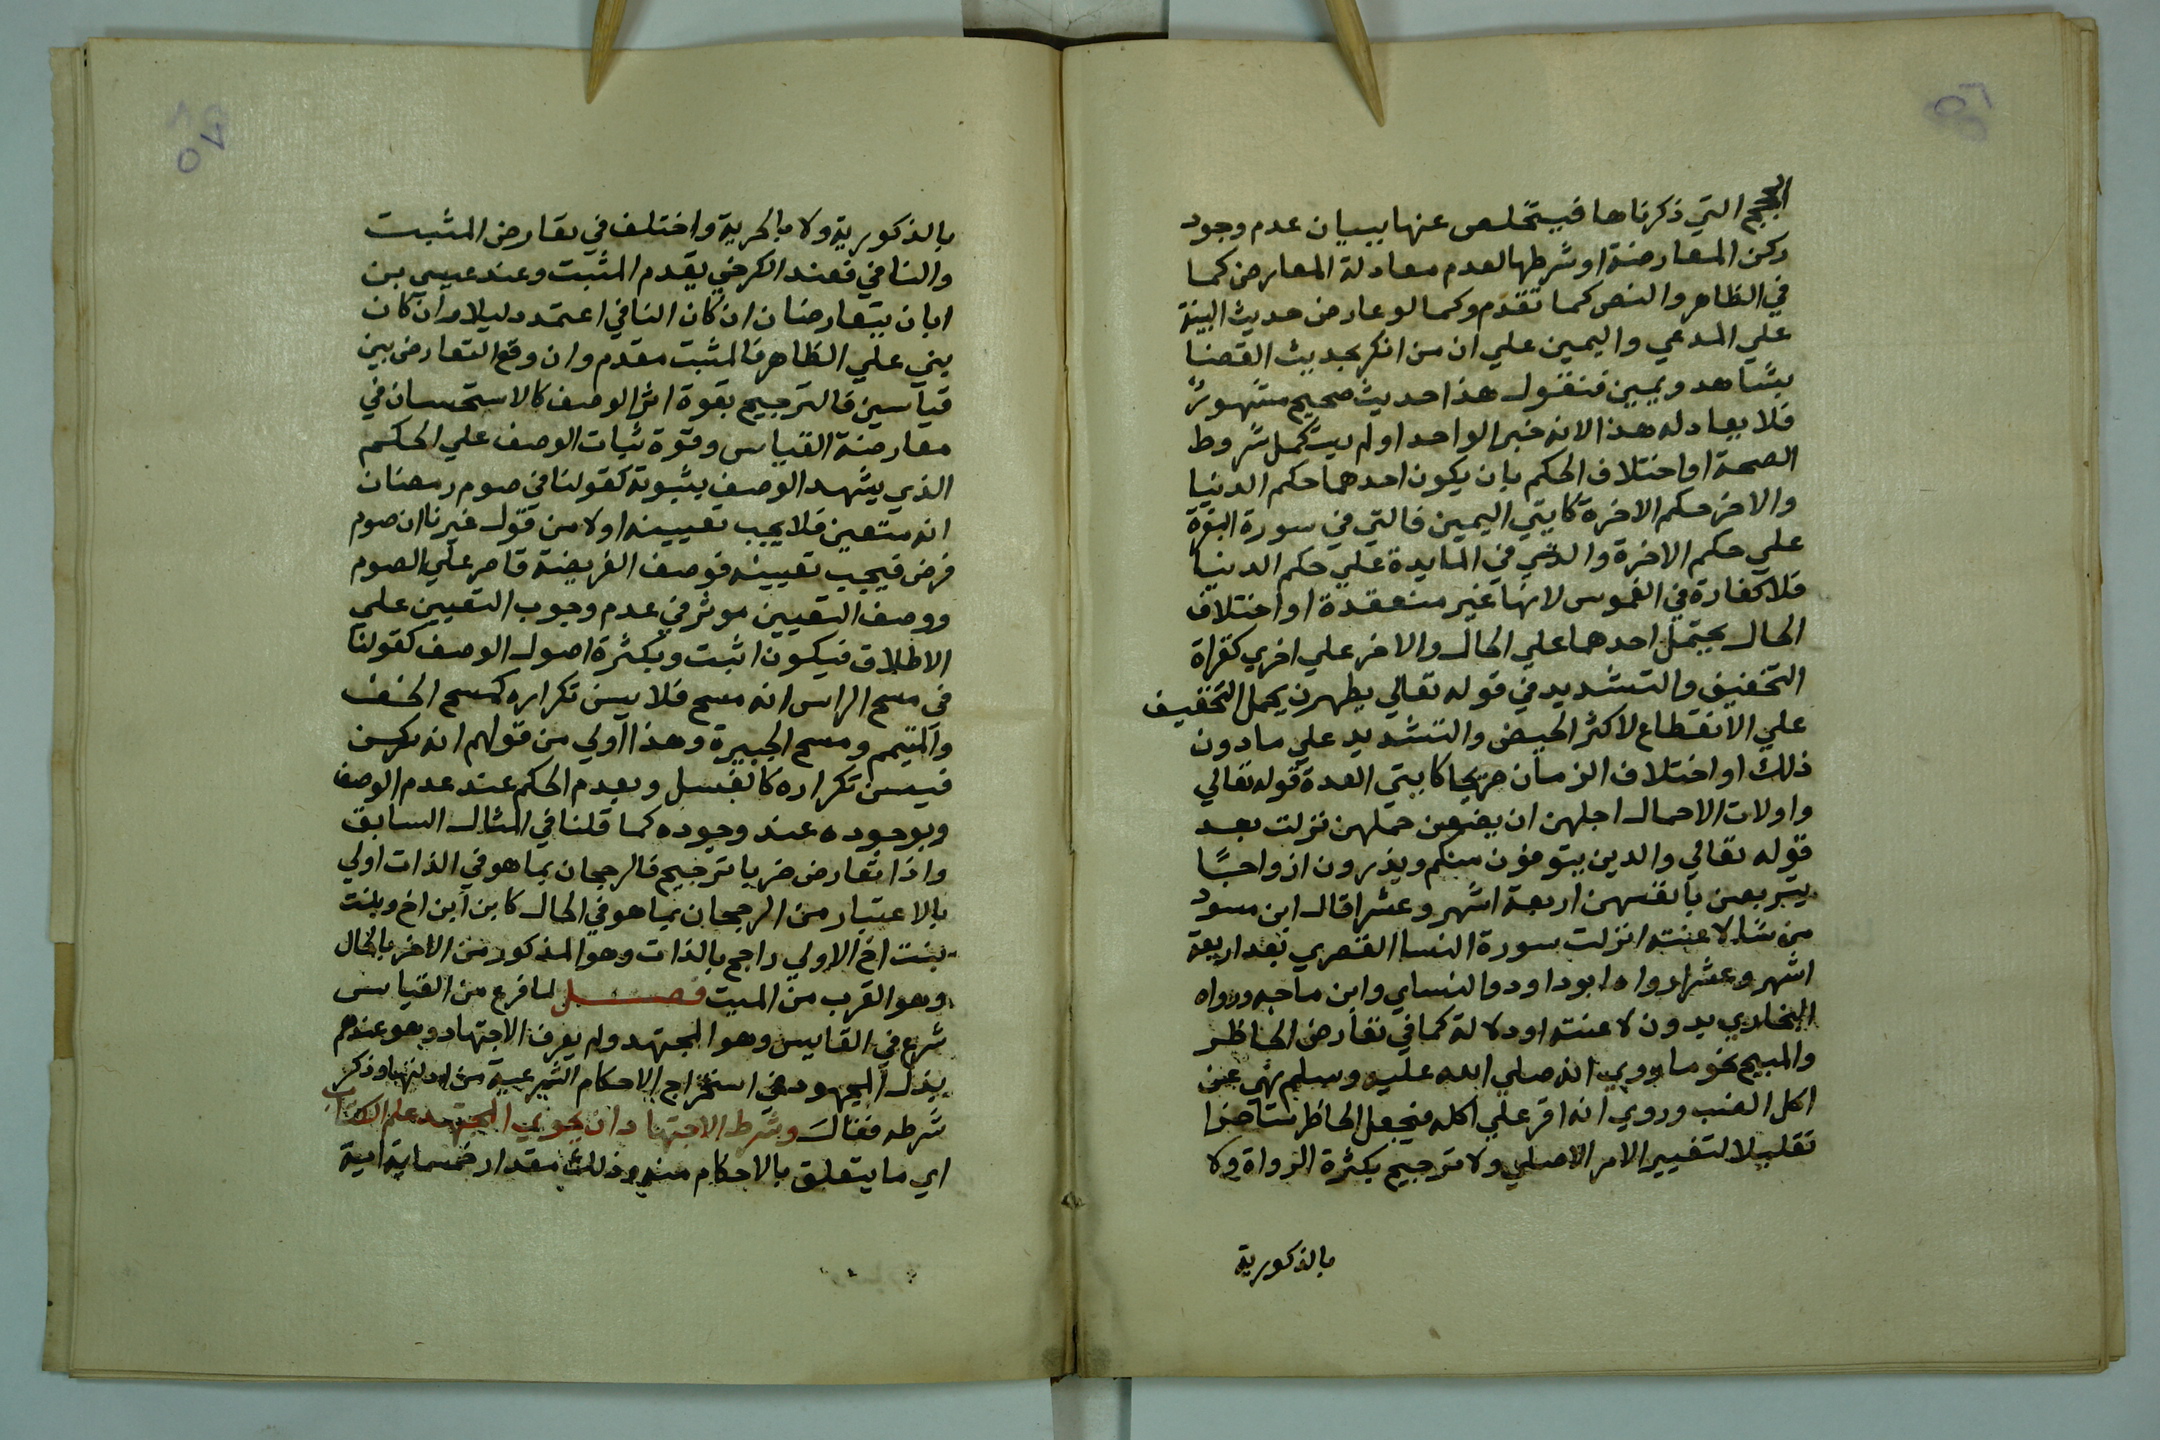 الحجج التي ذكرناها فيتخلص عنها ببيان عدم وجود
ركن المعارضة او شرطها لعدم معادلة المعارض كما
في الظاهر والنص كما تقدم وكما لو عارض حديث البينة
علي المدعي واليمين علي ان من انكر بحديث القضا
بشاهد ويمين فنقول هذا حديث صحيح مشهور
فلا يعادله هذا لانه خبر الواحد اولم يستكمل شروط
الصحة او اختلاف الحكم بان يكون احدهما حكم الدنيا
والاخر حكم الاخرة كايتي اليمين فالتي في سورة البقرة
علي حكم الاخرة والتي في المايدة علي حكم الدنيا
فلا كفارة في الغموس لانها غير منعقدة او اختلاف
الحال بحمل احدهما علي الحال والاخر علي اخري كقراة
التخفيف والتشديد في قوله تعالي يطهرن بحمل التخفيف
علي الانقطاع لاكثر الحيض والتشديد علي مادون
ذلك او اختلاف الزمان صريحا كايتي العدة قوله تعالي
واولات الاحمال اجلهن ان يضعن حملهن نزلت بعد
قوله تعالي والدين يتوفون منكم ويذرون ازواجًا
يتربصن بانفسهن اربعة اشهر وعشرا قال ابن مسعود
من شا لاعنته انزلت سورة النسا القصري بعد اربعة
اشهر وعشرا رواه ابوداود والنساي وابن ماجه ورواه
البخاري بدون لاعنته او دلالة كما في تعارض الحاظر
والمبيح نحو ما روي انه صلي الله عليه وسلم نهي عن
اكل الضب وروي انه اقر علي اكله فيجعل الحاظر متاخرا
تقليلا لتغيير الامر الاصلي ولا ترجيح بكثرة الرواة ولا
بالذكورية
٥٧
بالذكورية ولا بالحرية واختلف في تعارض المثبت
والنافي فعند الكرخي يقدم المثبت وعند عيسي بن
ابان يتعارضان ان كان النافي اعتمد دليلا وان كان
بني علي الظاهر فالمثبت مقدم وان وقع التعارض بين
قياسين فالترجيح بقوة اثر الوصف كالاستحسان في
معارضة القياس وقوة ثبات الوصف علي الحكم
الذي يشهد الوصف بثبوته كقولنا في صوم رمضان
انه متعين فلا يجب تعيينه اولا من قول غيرنا ان صوم
فرض فيجب تعيينه فوصف الفريضة قاصر علي الصوم
ووصف التعيين موثر في عدم وجوب التعيين علي
الاطلاق فيكون اثبت وبكثرة اصول الوصف كقولنا
في مسح الراس انه مسح فلا يسن تكراره كمسح الخف
والتيمم ومسح الجبيرة وهذا اولي من قولهم انه ركن
فيسن تكراره كالغسل وبعدم الحكم عند عدم الوصف
وبوجوده عند وجوده كما قلنا في المثال السابق
واذا تعارض ضربا ترجيح فالرجحان بما هو في الذات اولي
بالاعتبار من الرجحان بما هو في الحال كابن ابن اخ وبنت
بنت اخ الاولي راجح بالذات وهو المذكور من الاخر بالحال
وهو القرب من الميت فصل لما فرع من القياس
شرع في القايس وهو المجتهد ولم يعرف الاجتهاد وهو عندهم
بذل المجهود في استخراج الاحكام الشرعية من ادلتها وذكر
شرطه فقال وشرط الاجتهاد ان يحوي المجتهد علم الكتاب
اي ما يتعلق بالاحكام منه وذلك مقدار خمسماية اية